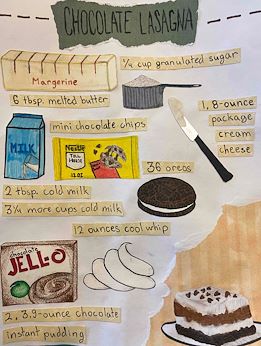 CHOCOLATE LASAGNA
1/4 cup granulated sugar
Margerine
6 tbsp. melted butter
1, 8-ounce
package
cream
cheese
mini chocolate chips
MILK
Nestle
TOLL
HOUSE
36 oreos
2 tbsp. cold milk
3 1/4 more cups cold milk
12 ounces cool whip
chocolate
JELL-O
2, 3.9-ounce chocolate
instant pudding